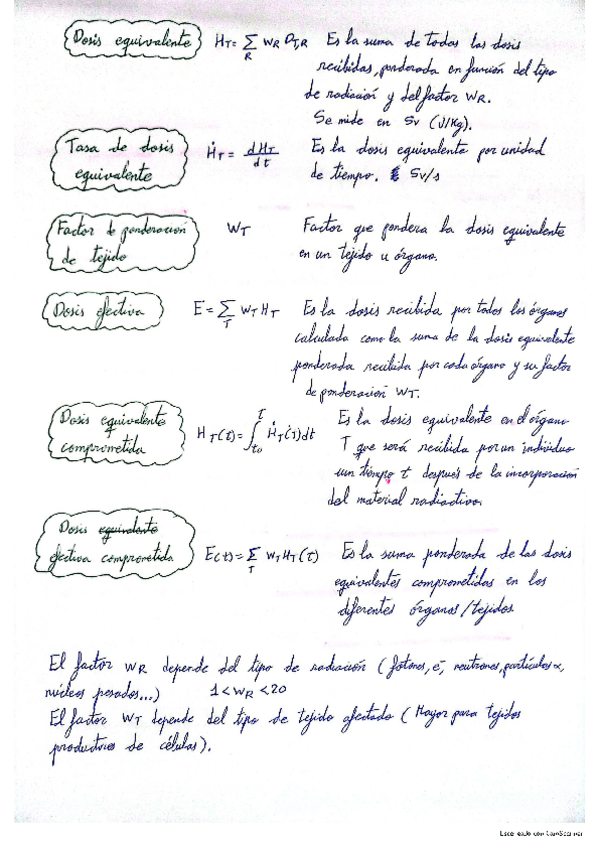 Dosis equivalente H_T = Σ_R W_R D_T,R Es la suma de todas las dosis
recibidas, ponderada en función del tipo
de radiación y del factor W_R.
Se mide en Sv (J/Kg).
Tasa de dosis equivalente Ḣ_T = dH_T/dt Es la dosis equivalente por unidad
de tiempo. Sv/s
Factor de ponderación de tejido W_T Factor que pondera la dosis equivalente
en un tejido u órgano.
Dosis efectiva E = Σ_T W_T H_T Es la dosis recibida por todos los órganos
calculada como la suma de la dosis equivalente
ponderada recibida por cada órgano y su factor
de ponderación W_T.
Dosis equivalente comprometida H_T(τ) = ∫_t0^τ Ḣ_T(τ)dt Es la dosis equivalente en el órgano
T que será recibida por un individuo
un tiempo t después de la incorporación
del material radiactivo.
Dosis equivalente
efectiva comprometida E(t) = Σ_T W_T H_T(τ) Es la suma ponderada de las dosis
equivalentes comprometidas en los
diferentes órganos/tejidos
El factor W_R depende del tipo de radiación (fotones, e⁻, neutrones, partículas α,
núcleos pesados...) 1 < W_R < 20
El factor W_T depende del tipo de tejido afectado (Mayor para tejidos
productores de células).
Escaneado con CamScanner